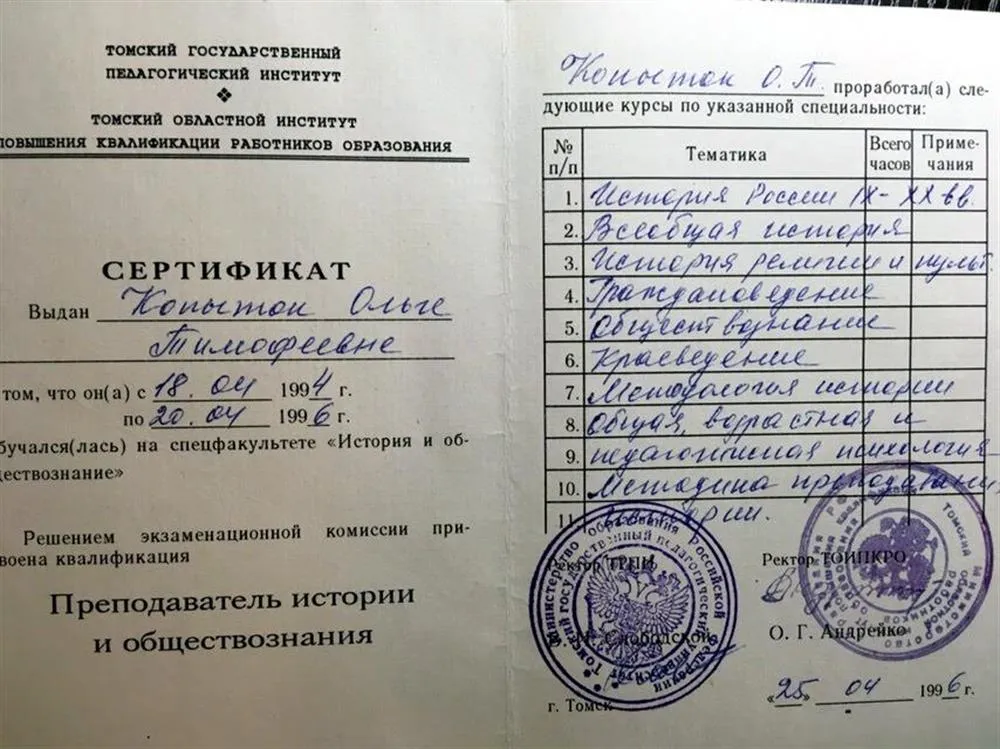 ТОМСКИЙ ГОСУДАРСТВЕННЫЙ
ПЕДАГОГИЧЕСКИЙ ИНСТИТУТ
ТОМСКИЙ ОБЛАСТНОЙ ИНСТИТУТ
ПОВЫШЕНИЯ КВАЛИФИКАЦИИ РАБОТНИКОВ ОБРАЗОВАНИЯ
СЕРТИФИКАТ
Выдан Копыток Ольге
Тимофеевне
том, что он(а) с 18.04 1994 г.
по 20.04 1996 г.
бучался(лась) на спецфакультете «История и об-
ществознание»
Решением экзаменационной комиссии при-
воена квалификация
Преподаватель истории
и обществознания
Копыток О.Т. проработал(а) сле-
дующие курсы по указанной специальности:
№ п/п Тематика Всего часов Приме-чания
1. История России IX-XX вв.
2. Всеобщая история
3. История религии и культ.
4. Граждановедение
5. Обществознание
6. Краеведение
7. Методология истории
8. Общая, возрастная и
9. педагогическая психология
10. Методика преподавани
11. истории.
Ректор ТГПИ Ректор ТОИПКРО
Слободской О. Г. Андрейко
г. Томск «25» 04 1996 г.
Министерство образования Российской Федерации
Томский государственный педагогический